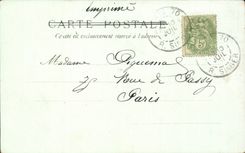 Imprimé
CARTE POSTALE
Ce côté est exclusivement réservé à l'adresse
Madame Piquenu
27 Rue de Passy
Paris